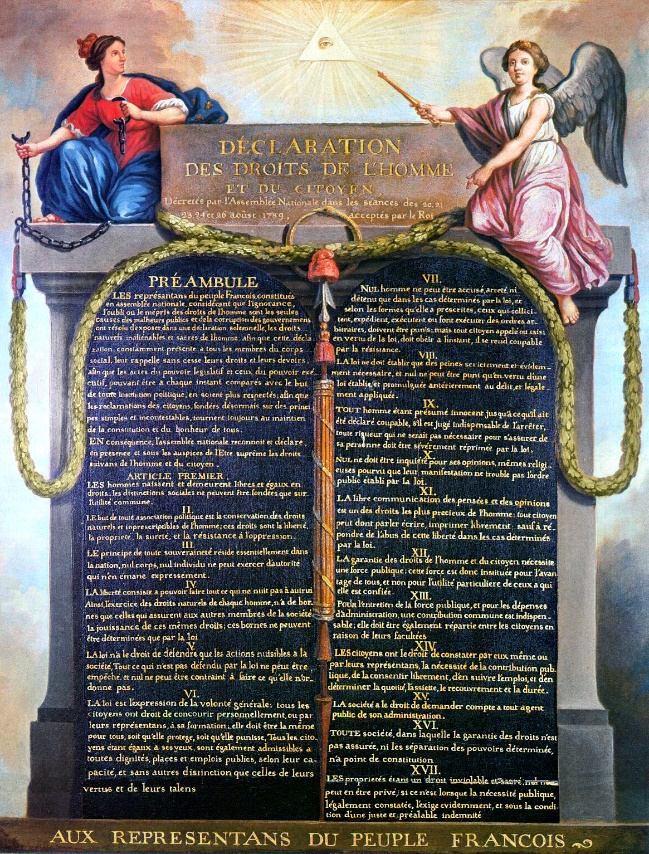 DÉCLARATION
DES DROITS DE L'HOMME
ET DU CITOYEN,
Décretés par l'Assemblée Nationale dans les séances des 20, 21
23, 24 et 26 août 1789,
acceptés par le Roi
PRÉAMBULE
LES représentans du peuple François, constitués
en assemblée nationale, considérant que l'ignorance,
l'oubli ou le mépris des droits de l'homme sont les seules
causes des malheurs publics et de la corruption des gouvernemens
ont résolu d'exposer dans une déclaration solemnelle, les droits
naturels inaliénables et sacrés de l'homme, afin que cette décla-
ration, constamment présente à tous les membres du corps
social, leur rappelle sans cesse leurs droits et leurs devoirs;
afin que les actes du pouvoir législatif et ceux du pouvoir exé-
cutif, pouvant être à chaque instant comparés avec le but
de toute institution politique, en soient plus respectés; afin que
les réclamations des citoyens, fondées désormais sur des princi-
pes simples et incontestables, tournent toujours au maintien
de la constitution et du bonheur de tous.
EN conséquence, l'assemblée nationale reconnoit et déclare,
en présence et sous les auspices de l'Etre suprême les droits
suivans de l'homme et du citoyen.
ARTICLE PREMIER.
LES hommes naissent et demeurent libres et égaux en
droits, les distinctions sociales ne peuvent être fondées que sur
l'utilité commune.
II.
LE but de toute association politique est la conservation des droits
naturels et inprescriptibles de l'homme; ces droits sont la liberté,
la propriété, la sureté, et la résistance à l'oppression.
III.
LE principe de toute souveraineté réside essentiellement dans
la nation, nul corps, nul individu ne peut exercer d'autorité
qui n'en émane expressément.
IV.
LA liberté consiste à pouvoir faire tout ce qui ne nuit pas à autrui
Ainsi, l'exercice des droits naturels de chaque homme, n'a de bor-
nes que celles qui assurent aux autres membres de la société
la jouissance de ces mêmes droits; ces bornes ne peuvent
être déterminées que par la loi
V.
LA loi n'a le droit de défendre que les actions nuisibles à la
société. Tout ce qui n'est pas défendu par la loi ne peut être
empêché, et nul ne peut être contraint à faire ce qu'elle n'or-
donne pas.
VI.
LA loi est l'expression de la volonté générale; tous les
citoyens ont droit de concourir personnellement, ou par
leurs représentans, à sa formation; elle doit être la même
pour tous, soit qu'elle protege, soit qu'elle punisse. Tous les cito-
yens étant égaux à ses yeux, sont également admissibles à
toutes dignités, places et emplois publics, selon leur ca-
pacité, et sans autres distinction que celles de leurs
vertus et de leurs talens
VII.
NUL homme ne peut être accusé, arreté, ni
détenu que dans les cas déterminés par la loi, et
selon les formes qu'elle a prescrites, ceux qui sollici-
tent, expédient, exécutent ou font exécuter des ordres ar-
bitraires, doivent être punis; mais tout citoyen appelé ou saisi
en vertu de la loi, doit obéir à l'instant, il se rend coupable
par la résistance.
VIII.
LA loi ne doit établir que des peines strictement et évidem-
ment nécessaire, et nul ne peut être puni qu'en vertu d'une
loi établie et promulguée antérierement au délit, et légale
ment appliquée.
IX.
TOUT homme étant présumé innocent jusqu'à ce qu'il ait
été déclaré coupable, s'il est jugé indispensable de l'arrêter,
toute rigueur qui ne serait pas nécessaire pour s'assurer de
sa personne doit être sévèrement réprimée par la loi.
X.
NUL ne doit être inquiété pour ses opinions, mêmes religi-
euses pourvu que leur manifestation ne trouble pas l'ordre
public établi par la loi.
XI.
LA libre communication des pensées et des opinions
est un des droits les plus precieux de l'homme: tout citoyen
peut dont parler écrire, imprimer librement: sauf à ré-
pondre de l'abus de cette liberté dans les cas déterminés
par la loi.
XII.
LA garantie des droits de l'homme et du citoyen nécessite
une force publique: cette force est donc instituée pour l'avan-
tage de tous, et non pour l'utilité particuliere de ceux a qui
elle est confiée.
XIII.
Pour l'entretien de la force publique, et pour les dépenses
d'administration, une contribution commune est indispen-
sable; elle doit être également répartie entre les citoyens en
raison de leurs facultées
XIV.
LES citoyens ont le droit de constater par eux même ou
par leurs représentans, la nécessité de la contribution pub-
lique, de la consentir librement, d'en suivre l'emploi, et d'en
déterminer la quotité, l'assiette, le recouvrement et la durée.
XV.
LA société a le droit de demander compte a tout agent
public de son administration.
XVI.
TOUTE société, dans laquelle la garantie des droits n'est
pas assurée, ni les séparation des pouvoirs déterminée,
n'a point de constitution
XVII.
LES propriétés étant un droit inviolable et sacré, nul ne
peut en être privé, si ce n'est lorsque la nécessité publique,
légalement constatée, l'exige evidemment, et sous la condi-
tion d'une juste et préalable indemnité
AUX REPRESENTANS DU PEUPLE FRANCOIS